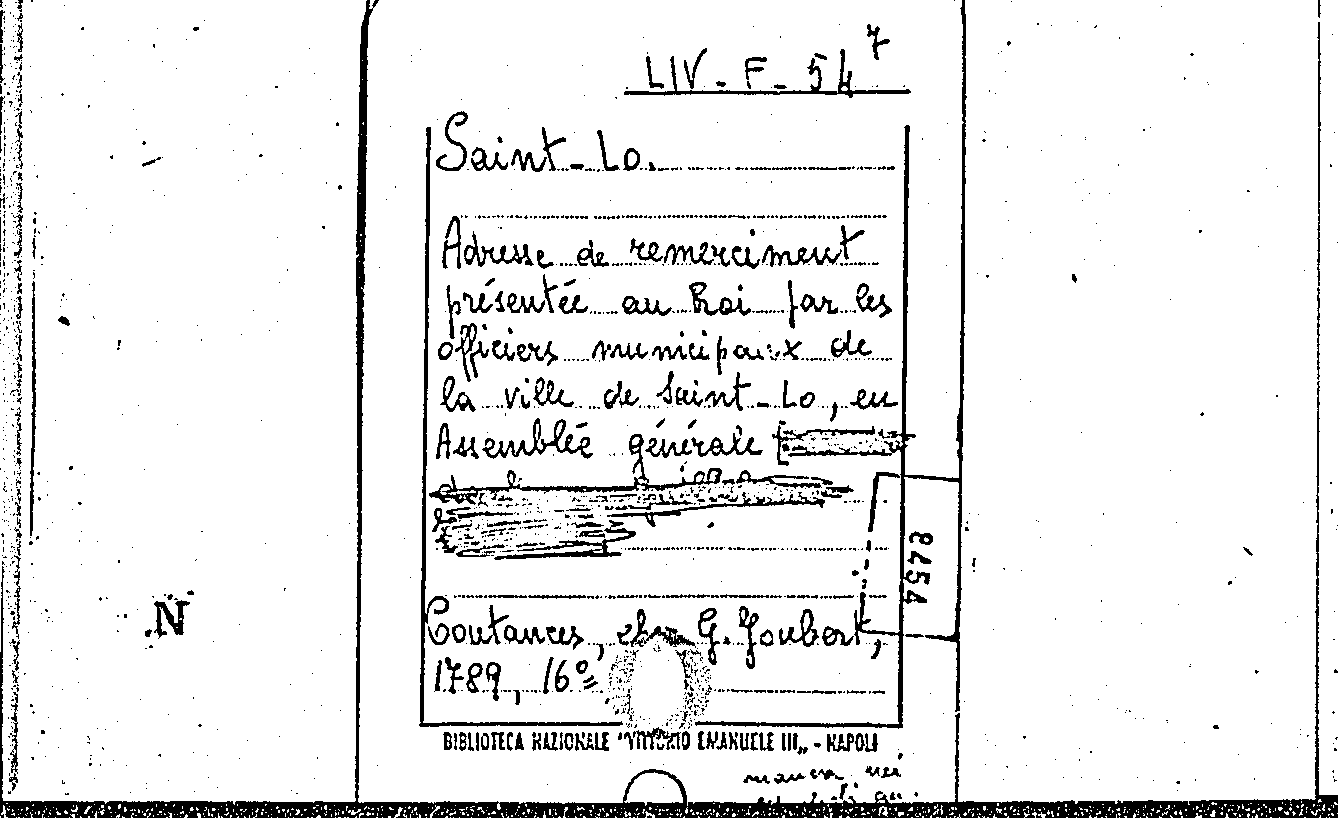 LIV - F - 54⁷
Saint-Lo.
Adresse de remerciment
présentée au Roi par les
officiers municipaux de
la ville de Saint-Lo, en
Assemblée générale [
Coutances, chez G. Joubert,
1789, 16º
BIBLIOTECA NAZIONALE "VITTORIO EMANUELE III„ - NAPOLI
8454
N
manca nei